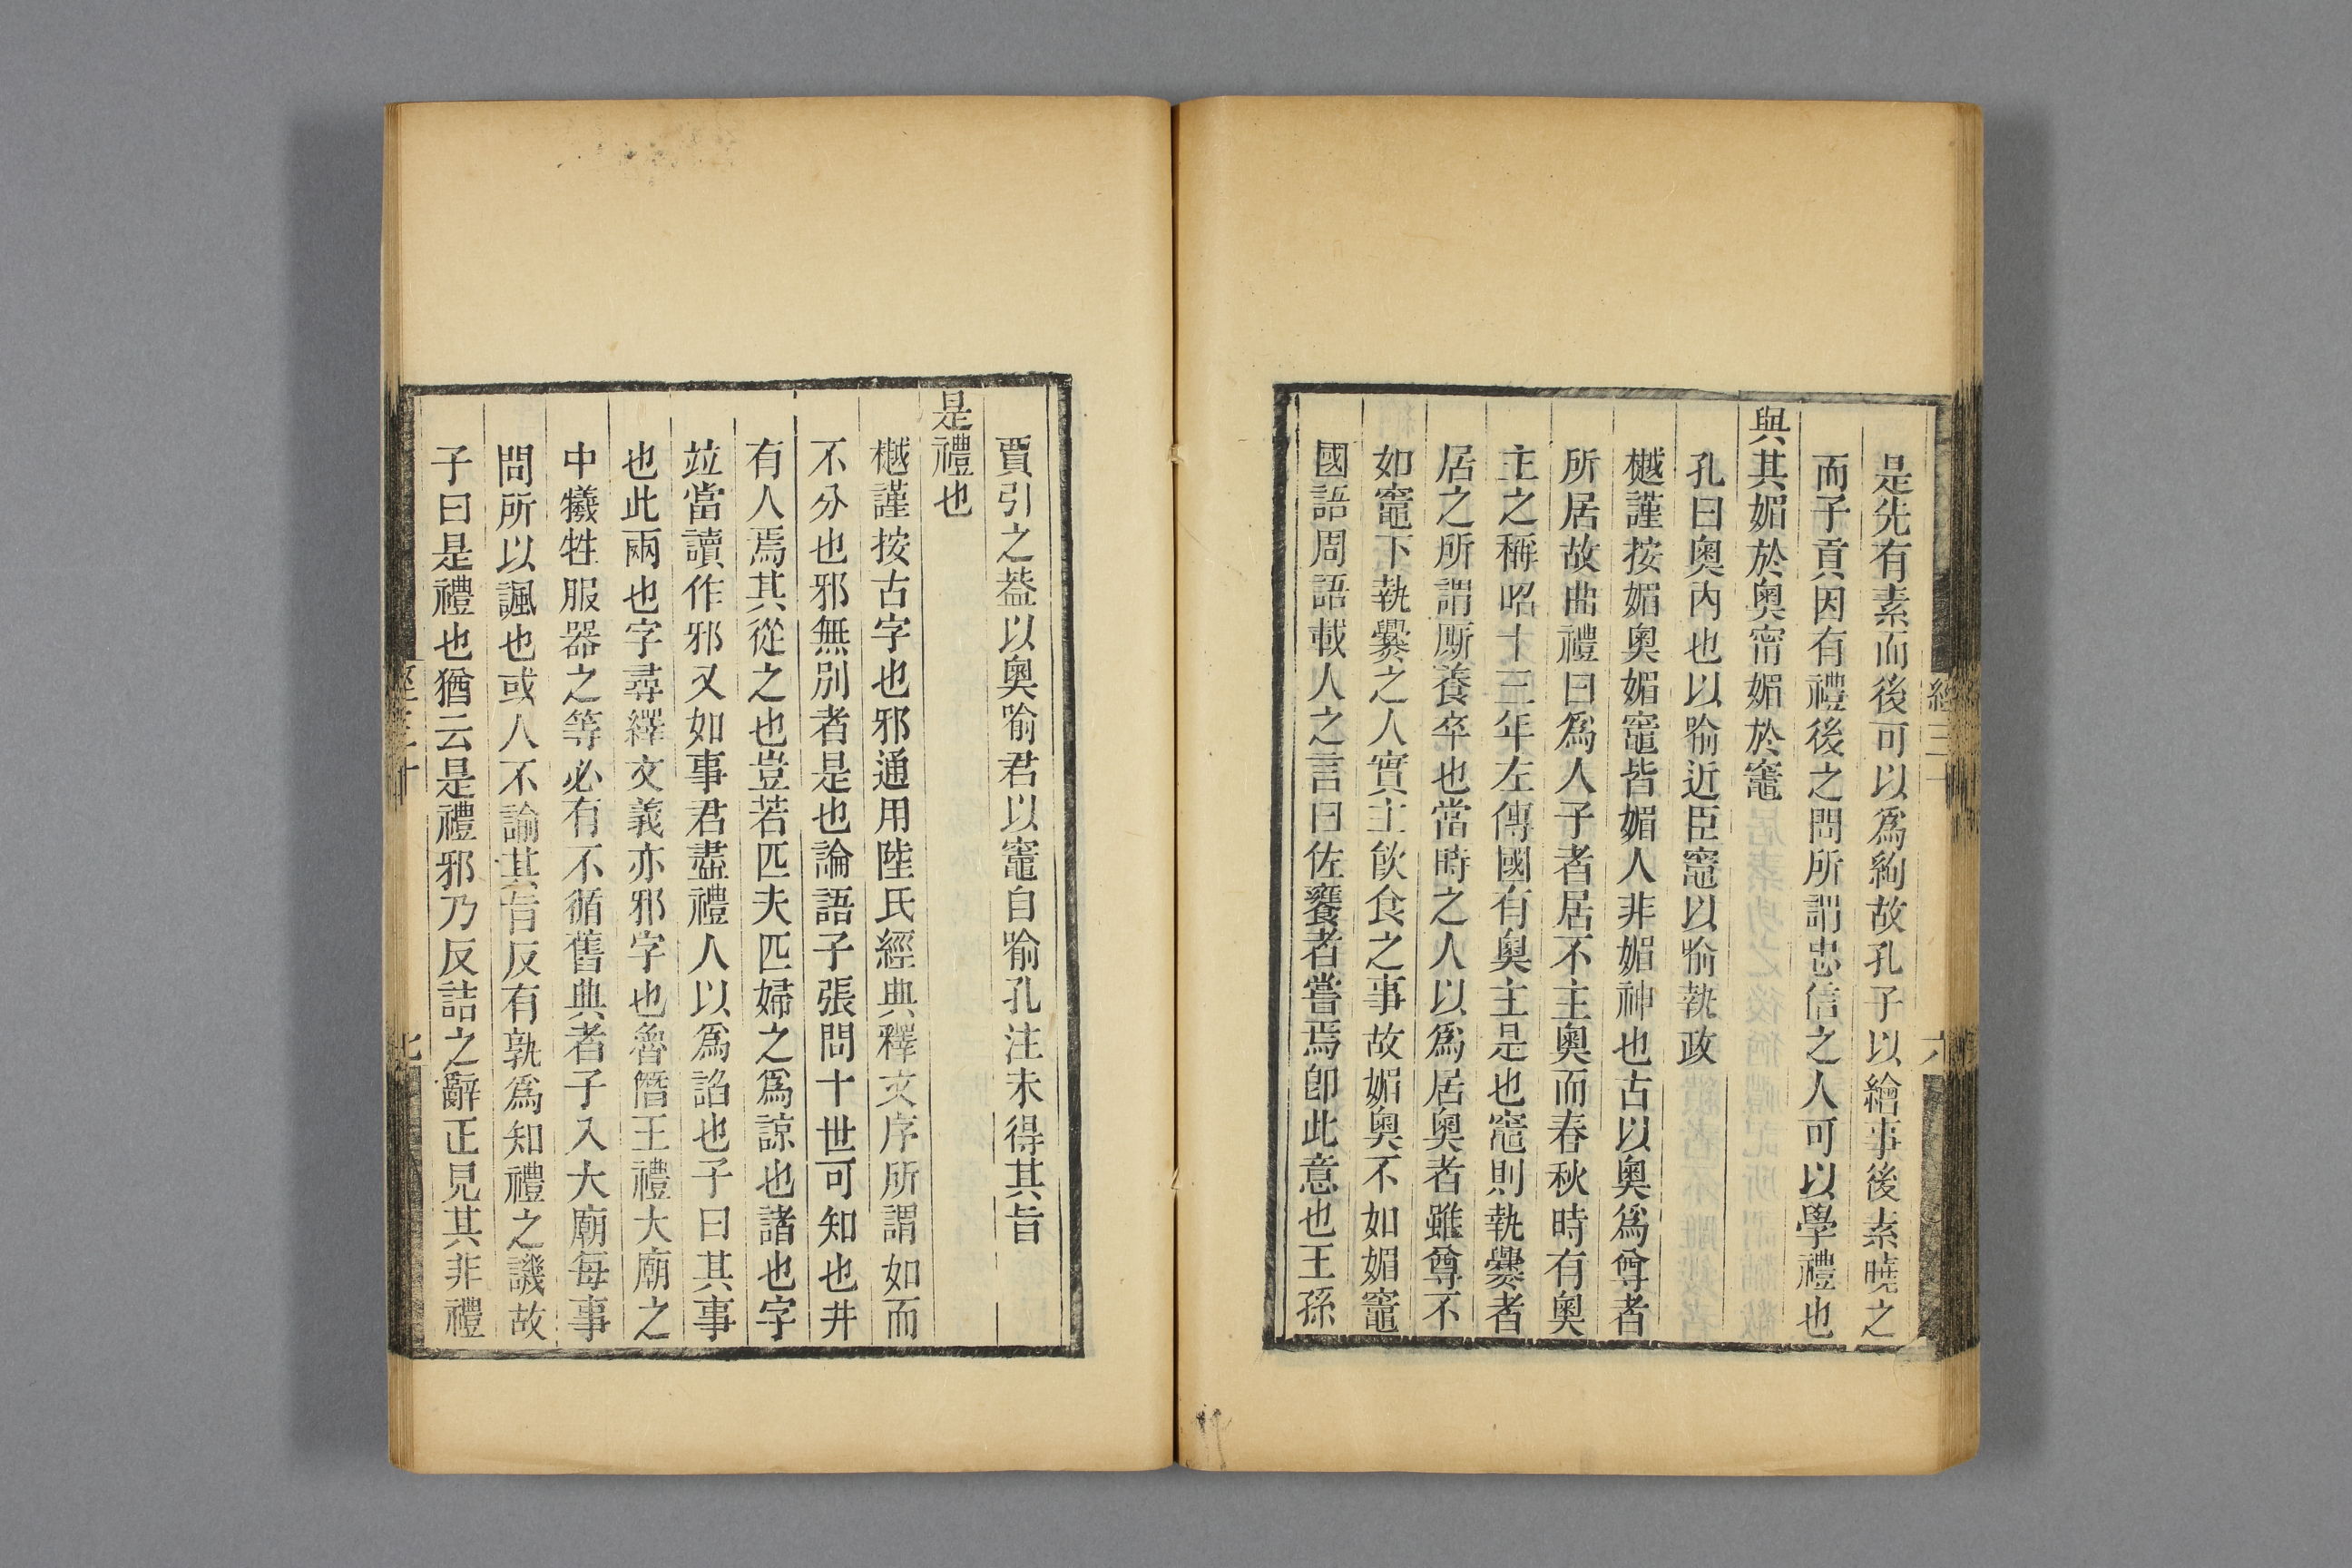 是先有素而後可以爲絢故孔子以繪事後素曉之
而子貢因有禮後之問所謂忠信之人可以學禮也
與其媚於奧甯媚於竈
孔曰奧內也以喻近臣竈以喻執政
樾謹按媚奧媚竈皆媚人非媚神也古以奧爲尊者
所居故曲禮曰爲人子者居不主奧而春秋時有奧
主之稱昭十三年左傳國有奧主是也竈則執爨者
居之所謂廝養卒也當時之人以爲居奧者雖尊不
如竈下執爨之人實主飲食之事故媚奧不如媚竈
國語周語載人之言曰佐饔者嘗焉卽此意也王孫
賈引之葢以奧喻君以竈自喻孔注未得其旨
是禮也
樾謹按古字也邪通用陸氏經典釋文序所謂如而
不分也邪無別者是也論語子張問十世可知也井
有人焉其從之也豈若匹夫匹婦之爲諒也諸也字
竝當讀作邪又如事君盡禮人以爲諂也子曰其事
也此兩也字尋繹文義亦邪字也魯僭王禮大廟之
中犧牲服器之等必有不循舊典者子入大廟每事
問所以諷也或人不論其旨反有孰爲知禮之譏故
子曰是禮也猶云是禮邪乃反詰之辭正見其非禮